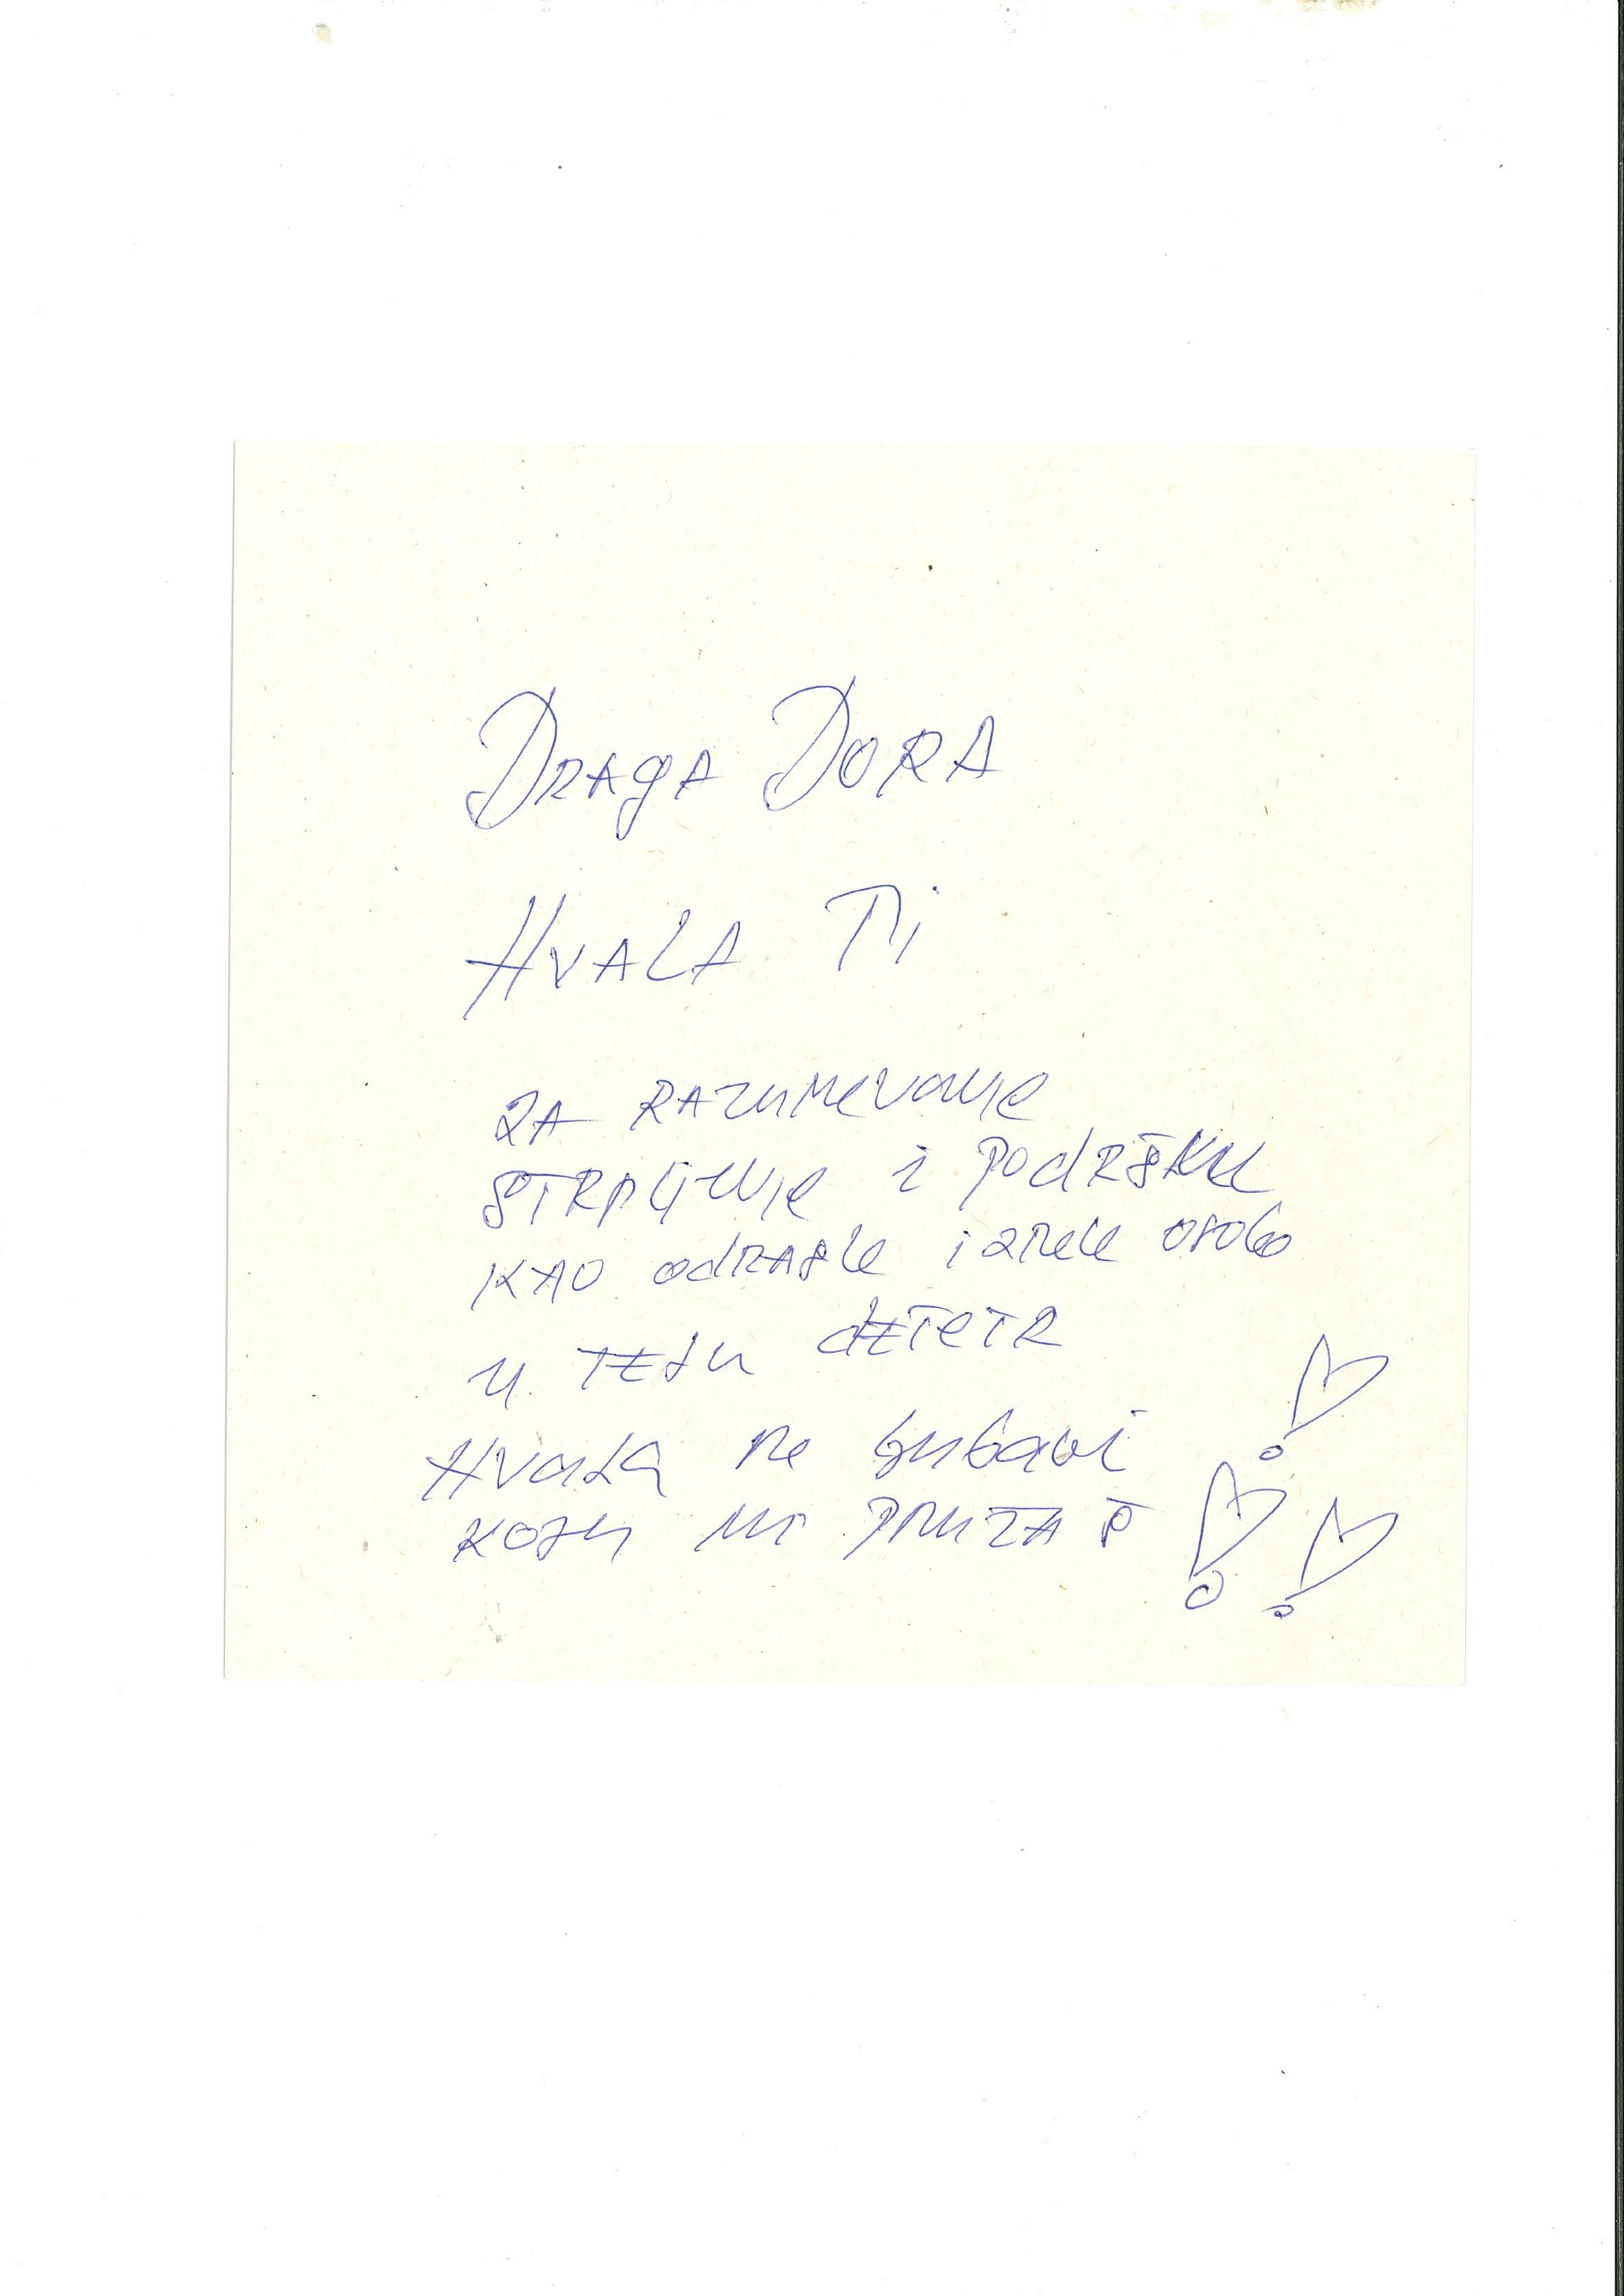 DRAGA DORA
HVALA Ti
ZA RAZuMevanje
STRPLjenje i podRšku
KAO odRASle i zRele osobe
u TELu deTeTA
Hvala na ljubavi
KOJu mi PRuŽAŠ